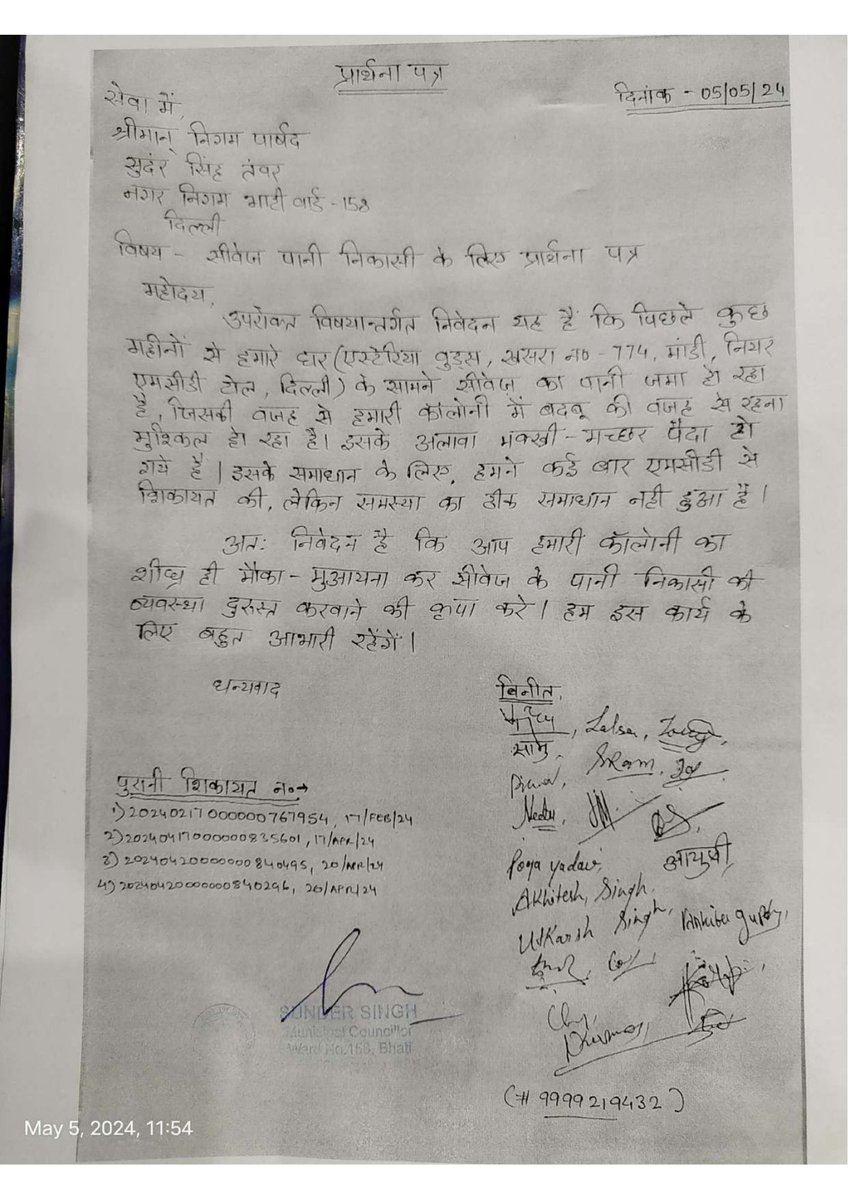 प्रार्थना पत्र
दिनांक - 05/05/24
सेवा में,
श्रीमान् निगम पार्षद
सुदंर सिंह तंवर
नगर निगम भाटी वार्ड - 158
दिल्ली
विषय - सीवेज पानी निकासी के लिए प्रार्थना पत्र
महोदय,
उपरोक्त विषयान्तर्गत निवेदन यह है कि पिछले कुछ
महीनों से हमारे घर (एस्टेरिया वुड्स, खसरा न० - 774, मांडी, नियर
एमसीडी टोल, दिल्ली) के सामने सीवेज का पानी जमा हो रहा
है, जिसकी वजह से हमारी कॉलोनी में बदबू की वजह से रहना
मुश्किल हो रहा है। इसके अलावा मक्खी - मच्छर पैदा हो
गये है। इसके समाधान के लिए, हमने कई बार एमसीडी से
शिकायत की, लेकिन समस्या का ठीक समाधान नही हुआ है।
अतः निवेदन है कि आप हमारी कॉलोनी का
शीघ्र ही मौका - मुआयना कर सीवेज के पानी निकासी की
व्यवस्था दुरूस्त करवाने की कृपा करे। हम इस कार्य के
लिए बहुत आभारी रहेंगें।
धन्यवाद
विनीत,
सोनू,
SRam,
Neetu,
पुरानी शिकायत न०→
1) 20240217000000767954, 17/FEB/24
2) 20240417000000835601, 17/APR/24
3) 20240420000000840495, 20/APR/24
4) 20240420000000840296, 20/APR/24
Pooja yadav, आयुषी,
Akhilesh, Singh,
Utkarsh Singh, Ankita Gupta,
SUNDER SINGH
Municipal Councillor
Ward No.158, Bhati
(# 9999219432)
May 5, 2024, 11:54